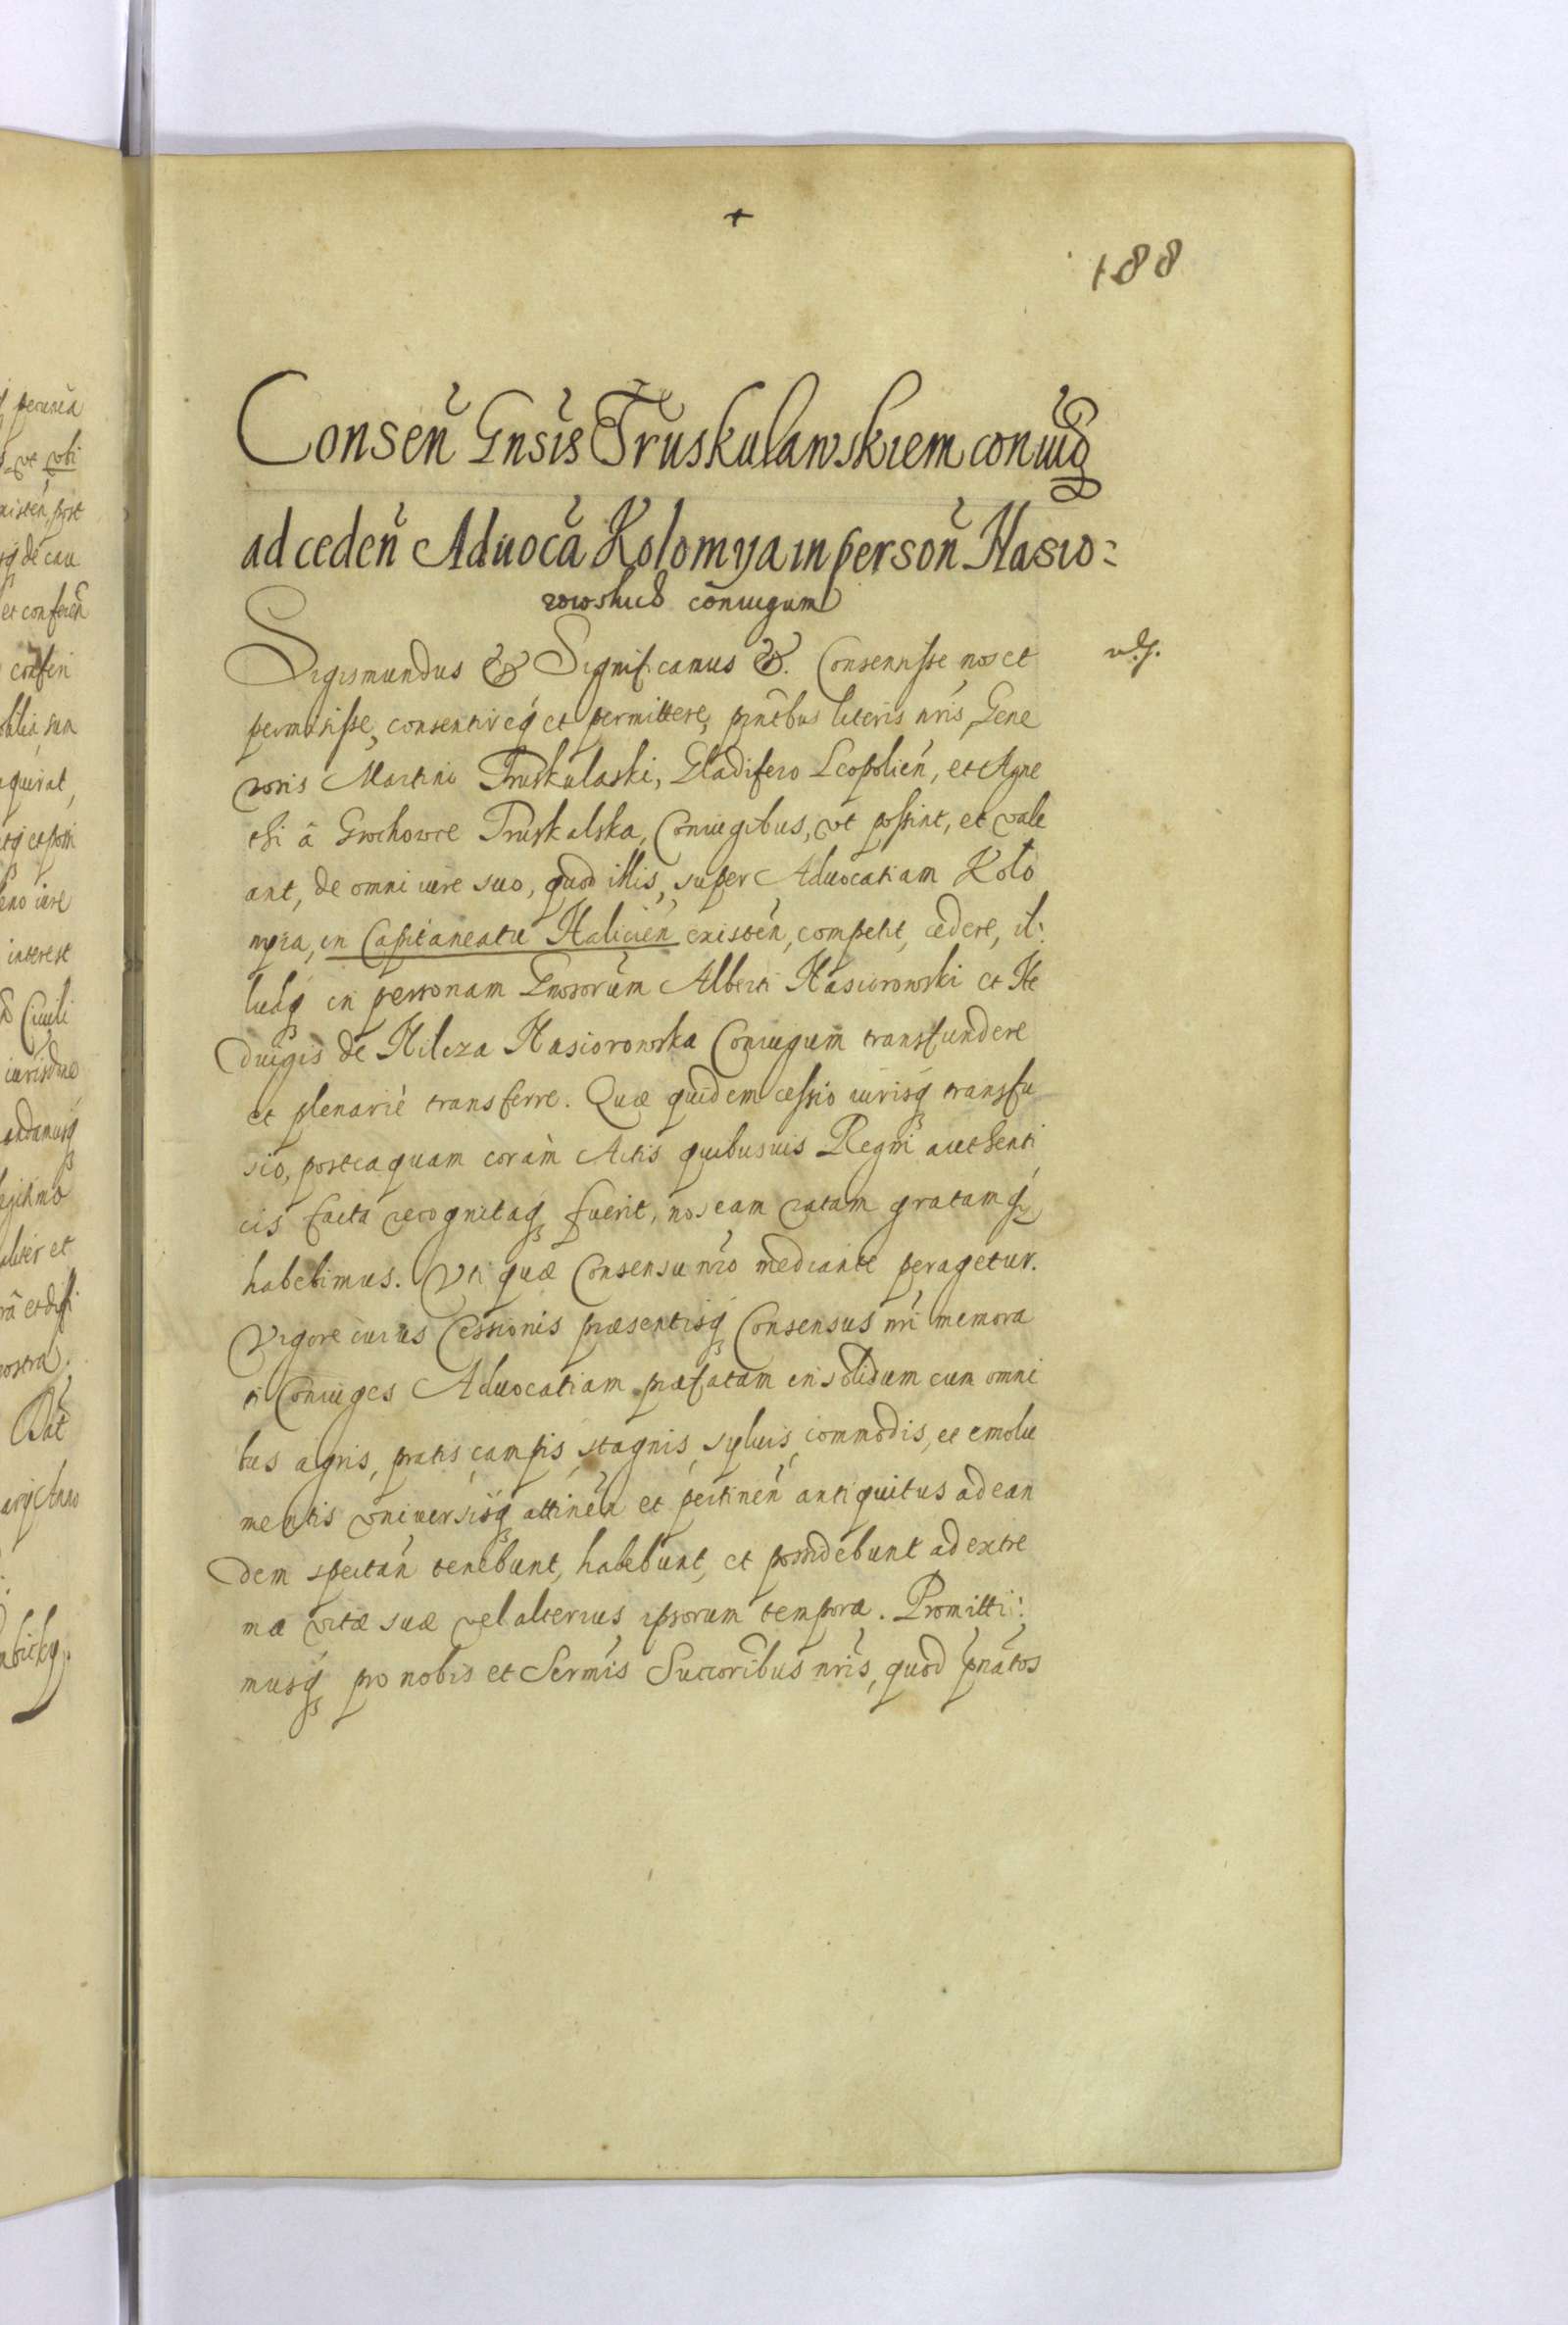 188
Consen̄ Gnsis Truskulawskiem coniug
ad ceden̄ Aduoca̅ Kolomya in person̄ Hasio:
rowskich coniugum
Sigismundus &. Significamus &. Consensisse nos et
permisisse, consentireq́ et permittere, pn̄tibus literis nr̄is, Gene
rosis Martino Truskulaski, Gladifero Leopolien̄, et Agne
thi â Grochowce Truskalska, Coniugibus, vt possint, et vale
ant, de omni iure suo, quod illis, super Aduocatiam Kolo
myia, in Capitaneatu Halicien̄ existen̄, competit, cedere, il:
ludq́ in personam Gnosorum Alberti Hasiorowski et He
duigis de Hilcza Hasiorowska Coniugum transfundere
et plenariè transferre. Quæ quidem cessio iurisq́ transfu
sio, posteaquam coràm Actis quibusuis Regni authenti
cis facta recognitaq́ fuerit, nos eam ratam gratamq́
habebimus. Vti quæ Consensu nr̄o mediante peragetur.
Vigore cuius Cessionis præsentisq́ Consensus nr̄i memora
ti Coniuges Aduocatiam præfatam in solidum cum omni
bus agris, pratis, campis, stagnis, syluis, commodis, et emolu
mentis vniuersisq́ attinen̄ et pertinen̄ antiquitus ad ean
dem spectan̄ tenebunt, habebunt, et possidebunt ad extre
ma vitæ suæ vel alterius ipsorum tempora. Promitti:
musq́ pro nobis et Serm̄is Succoribus nr̄is, quod pn̄atos